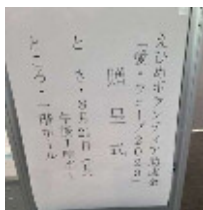 えひめボランティア助成金
「愛・フォーブ2022」
贈呈式
とき・8月21日（日）
午後1時から
ところ・一階ホール